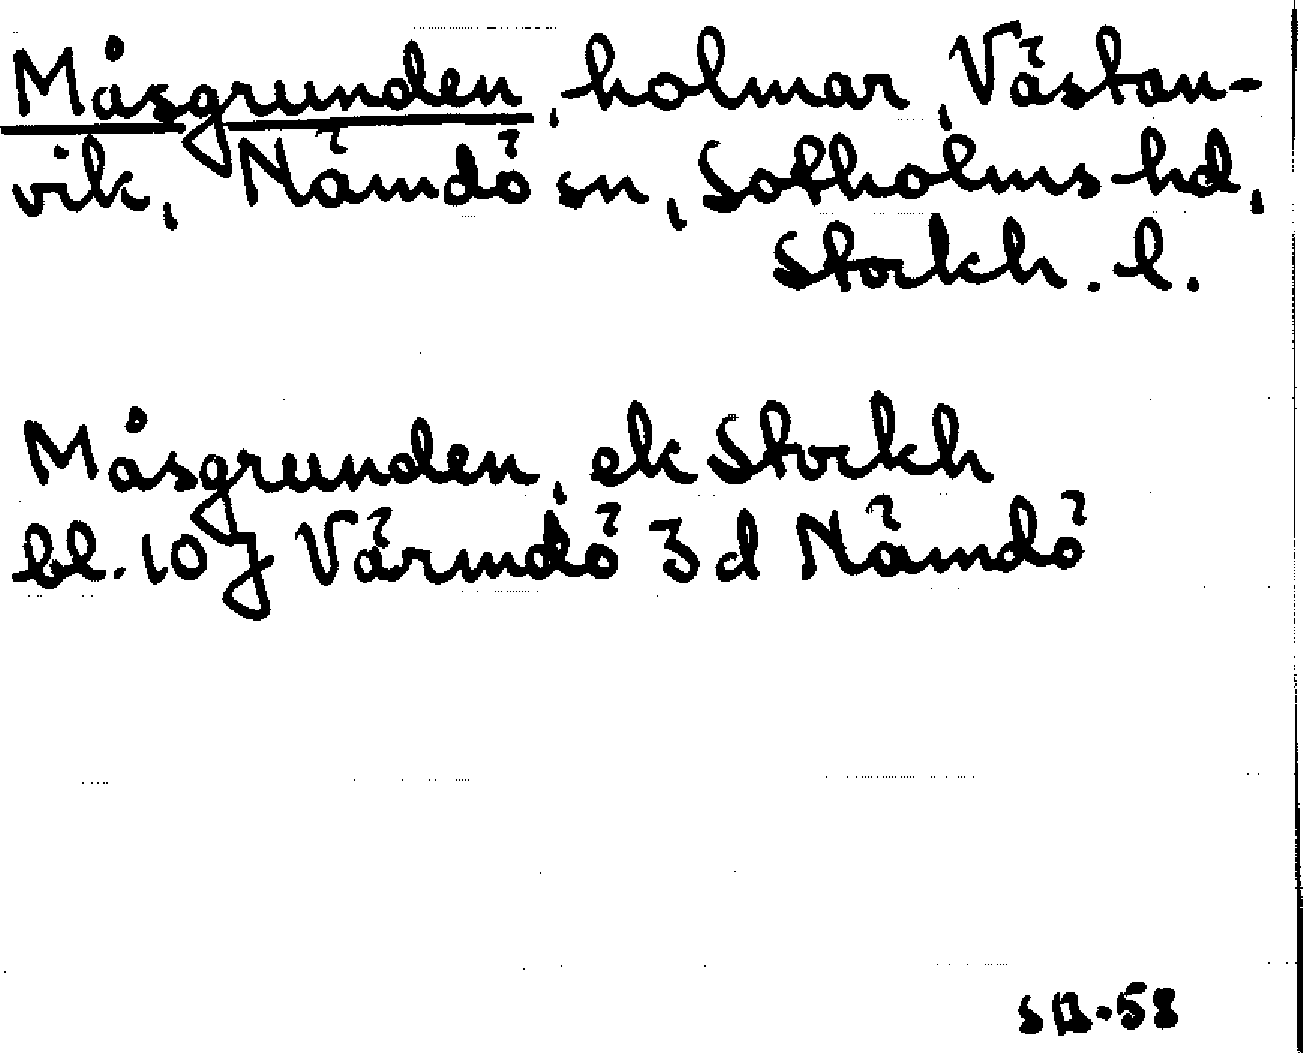 Måsgrunden, holmar, Västan-
vik, Nämdö sn, Sotholms hd,
Stockh. l.
Måsgrunden, ek Stockh
bl. 10j Värmdö 3d Nämdö
SB-58